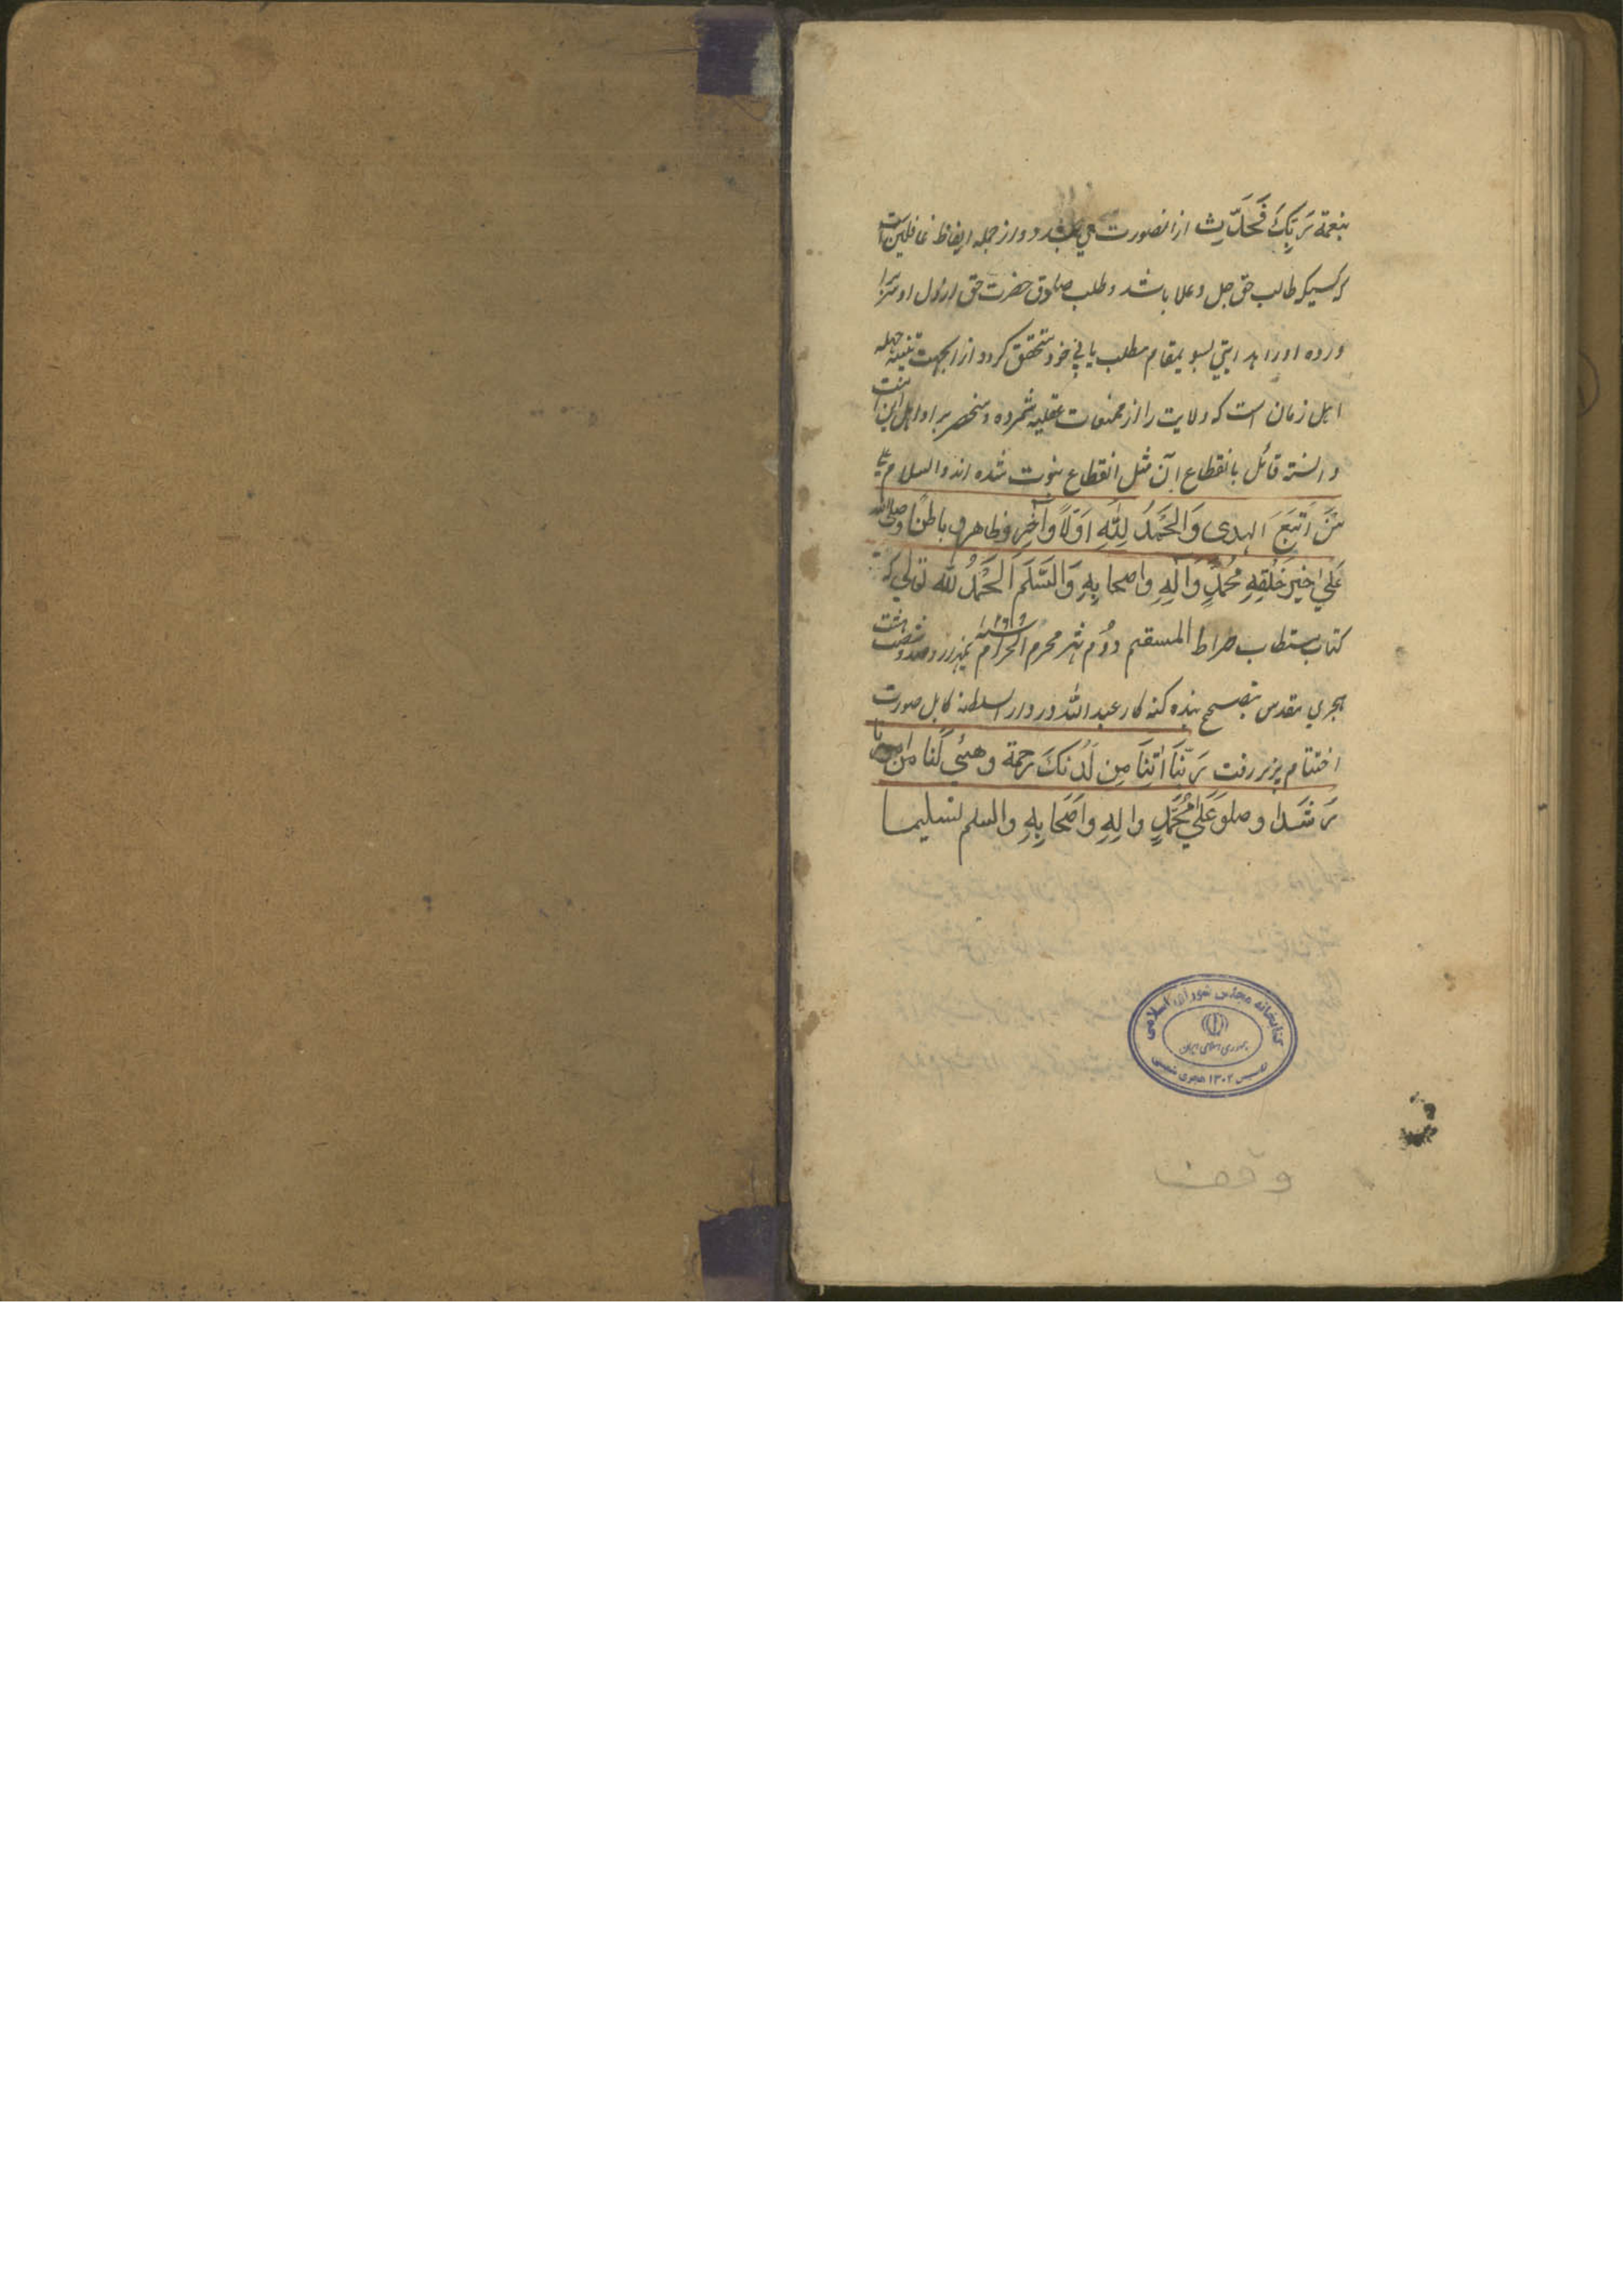 بنعمة رَبِّكَ فَحَدِّث ازانصورت می بندد و از جمله ایقاظ غافلین است
کسیکه طالب حق جل وعلا باشد و طلب حضرت حق از دل او سر
اورا بدایتی بسوی مقام مطلب یابی خود متحقق کردد از انجهت تنبیه جهله
اهل زمان است که ولایت را از ممتنعات عقلیه شمرده و منحصر بر اوایل این امت
دانسته قائل بانقطاع آن مثل انقطاع نبوت شده اند والسلام علی
مَنَ اتَّبَعَ الهدی وَالحَمْدُ لِلّٰهِ اَوّلاً وآخِر وظاهر و باطنًا وصلی الله
عَلیٰ خیرَ خَلْقِهِ مُحمّدٍ وَآلِهِ واصحابِهِ وَالسَّلَم اَلحَمْدُ لله تعالی که
کتاب مستطاب صراط المستقیم دوُم شهر محرم الحرام سنه ۱۲۶۸ یکهزار دوصد وشصت هشت
هجری مقدس بتصحیح بنده کنه کار عبد الله در دار السلطنه کابل صورت
اختتام پزیر رفت رَبّنَا اٰتِنَا مِن لَدُنكَ رَحمة وهیّئ لَنا من امرنا
رَشَدا وصلو عَلیٰ مُحمّدٍ والِهِ واَصْحَابِهِ والسلم تسلیما
کتابخانه مجلس شورای اسلامی
جمهوری اسلامی ایران
تاسیس ۱۳۰۲ هجری شمسی
وقف